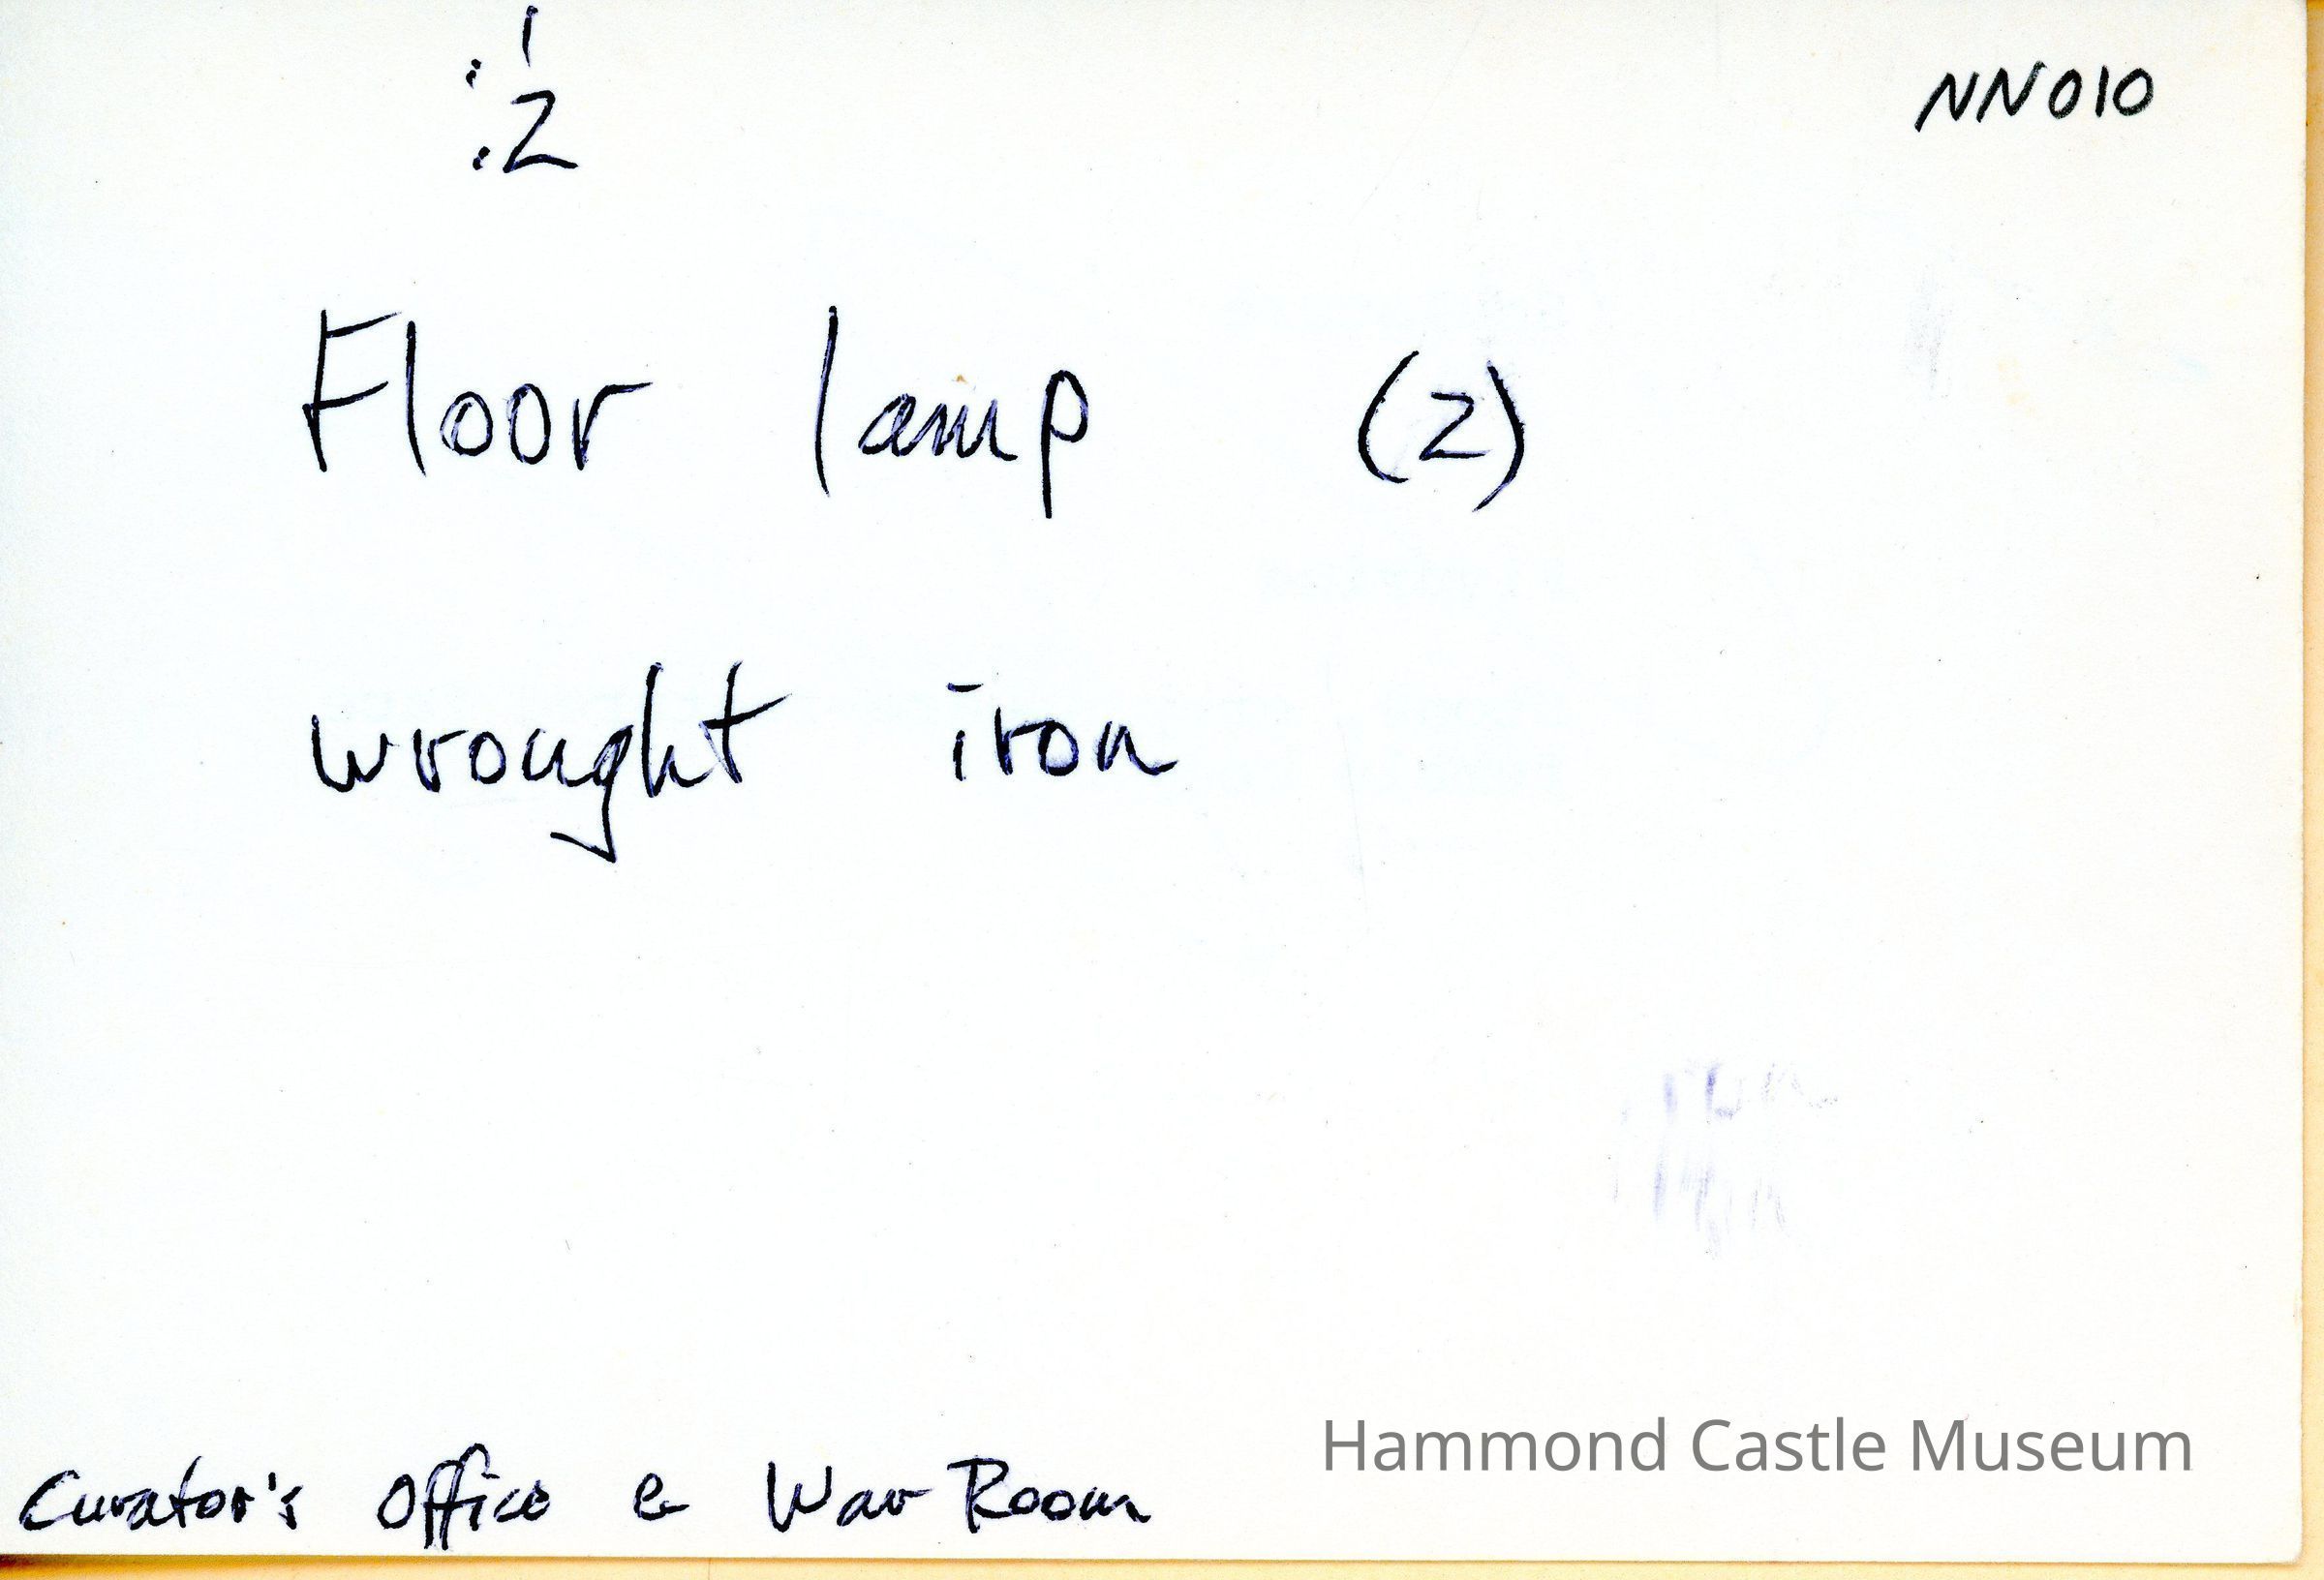 :1
NN010
:2
Floor lamp (2)
wrought iron
Hammond Castle Museum
Curator's Office & War Room